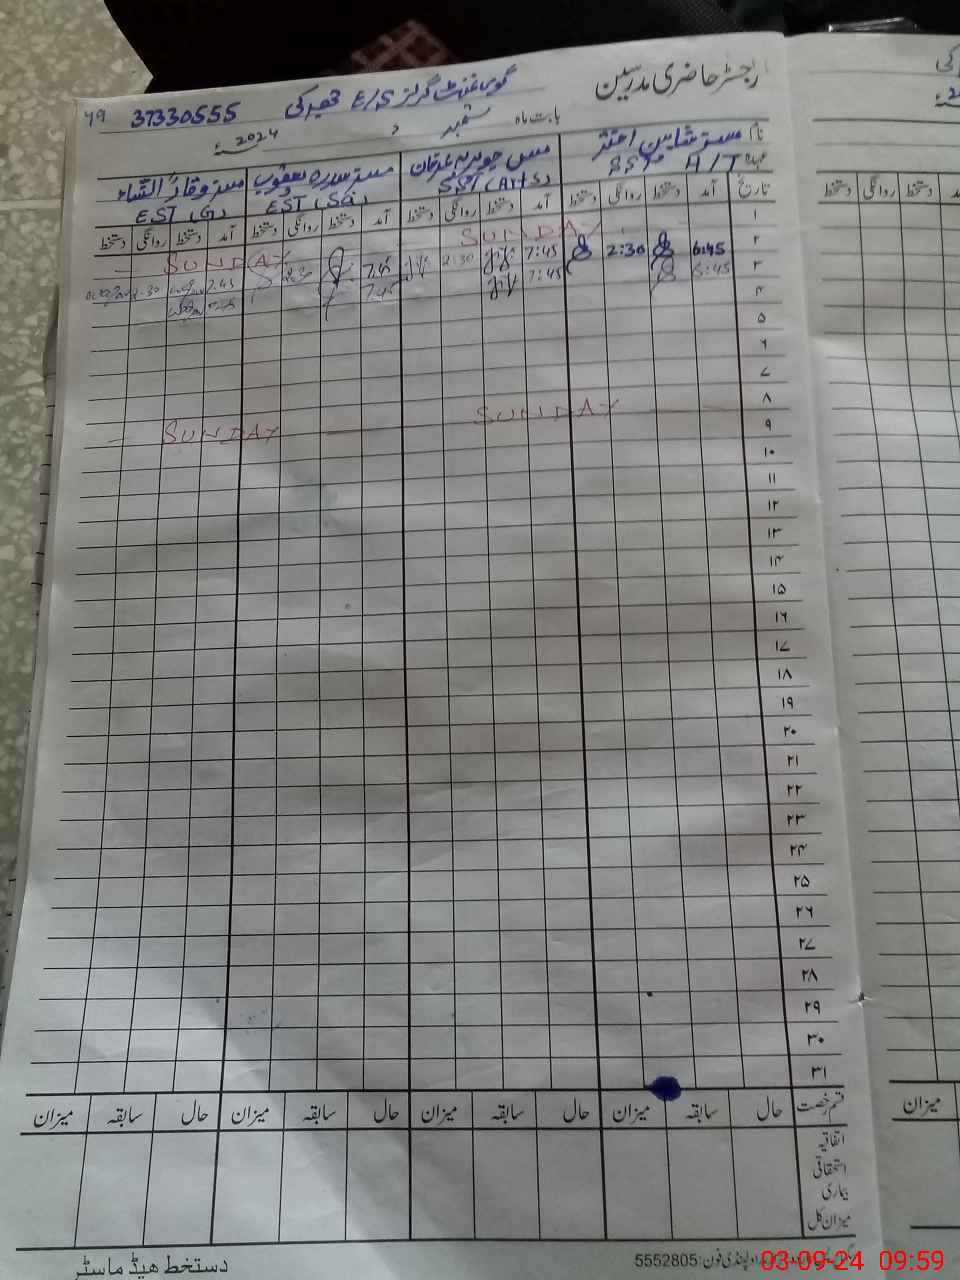 رجسٹر حاضری مدرسین گورنمنٹ گرلز E/S 37330555 49
بابت ماہ ستمبر 2024ء
نام مسز شاہین اختر مس جویریہ عرفان مسز سدرہ یعقوب مسز وقار النساء
عہدہ SST H/T SST (Arts) EST (SG) EST (G)
تاریخ آمد دستخط روانگی دستخط آمد دستخط روانگی دستخط آمد دستخط روانگی دستخط آمد دستخط روانگی دستخط
۱ SUNDAY SUNDAY
۲ 6:45 2:30 7:45 2:30 7:45 2:30 7:45 2:30
۳ 6:45 7:45 7:45
۴
۵
۶
۷
۸ SUNDAY SUNDAY
۹
۱۰
۱۱
۱۲
۱۳
۱۴
۱۵
۱۶
۱۷
۱۸
۱۹
۲۰
۲۱
۲۲
۲۳
۲۴
۲۵
۲۶
۲۷
۲۸
۲۹
۳۰
۳۱
قسم رخصت حال سابقہ میزان حال سابقہ میزان حال سابقہ میزان حال سابقہ میزان
اتفاقیہ
استحقاقی
بیماری
میزان کل
دستخط ھیڈ ماسٹر
راولپنڈی فون: 5552805
03-09-24 09:59